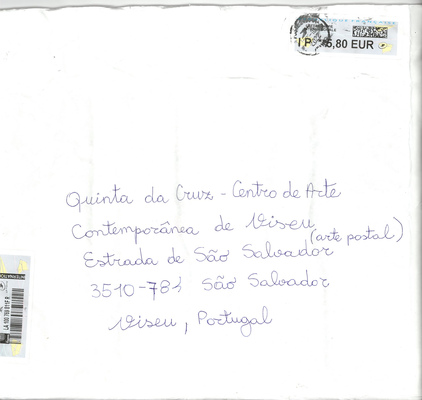 IP 5,80 EUR
Quinta da Cruz - Centro de Arte
Contemporânea de Viseu
(arte postal)
Estrada de São Salvador
3510-784 São Salvador
Viseu, Portugal